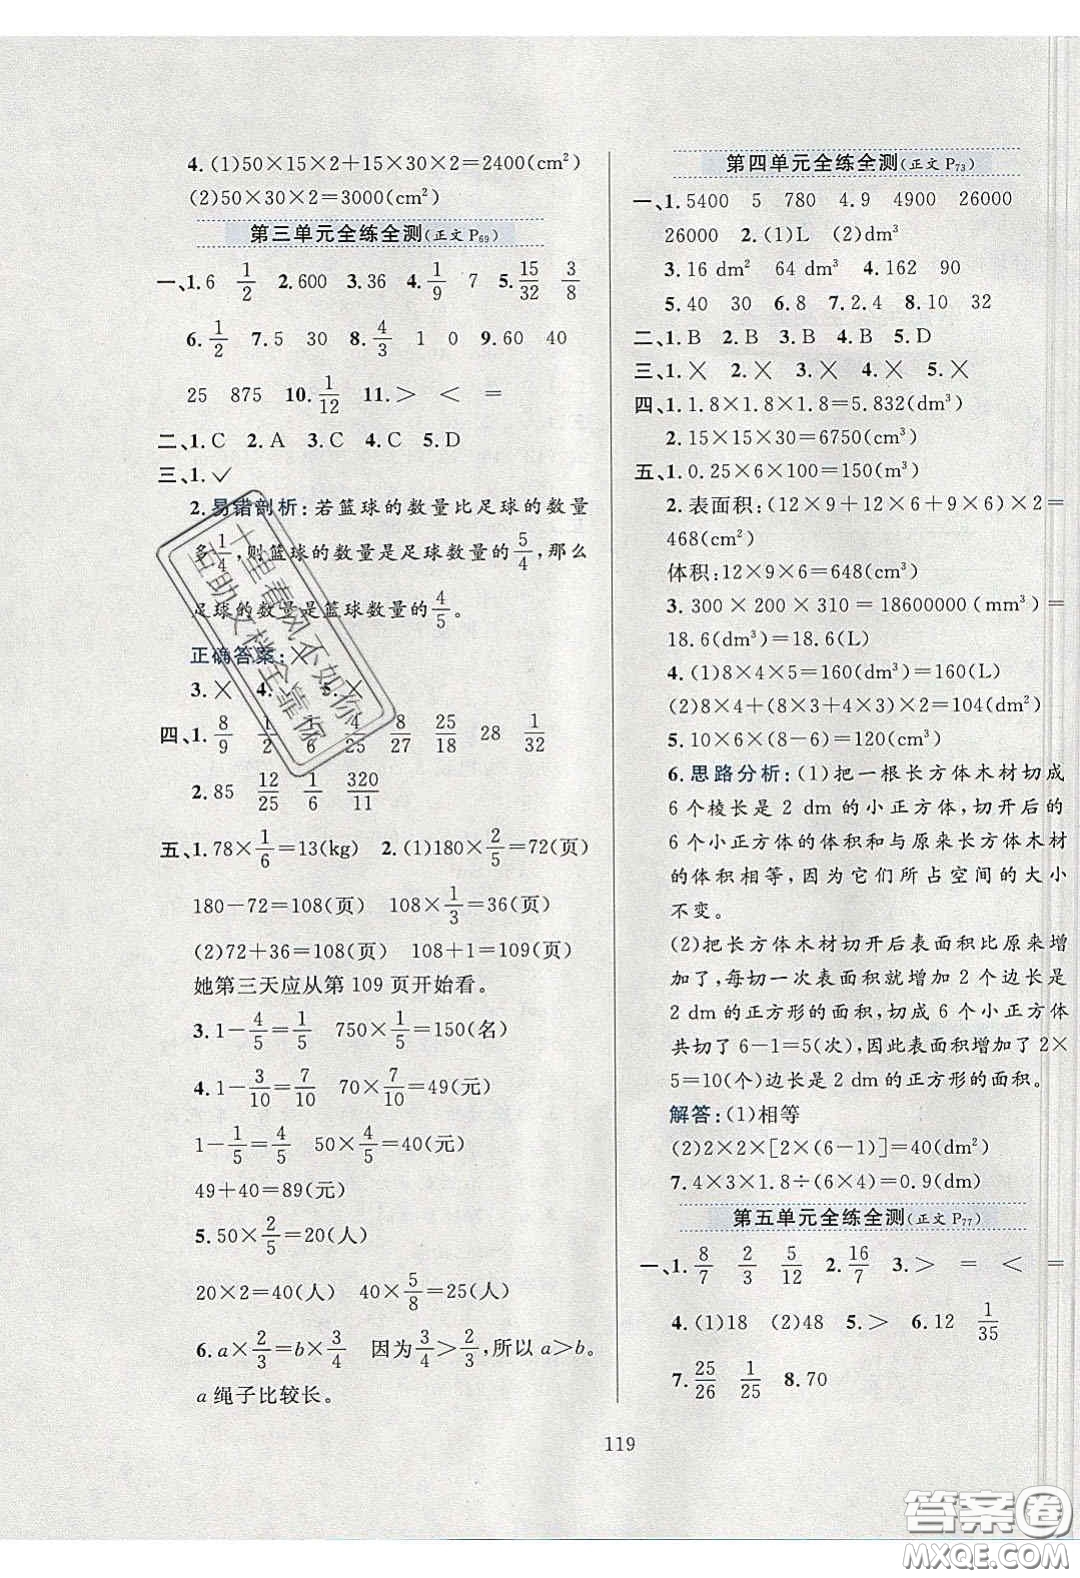 4.(1)50×15×2+15×30×2=2400(cm²)
(2)50×30×2=3000(cm²)
第三单元全练全测(正文 P69)
一、1.6 1/2 2.600 3.36 4.1/9 7 5.15/32 3/8
6.1/2 7.5 30 8.4/3 1 0 9.60 40
25 875 10.1/12 11.> < =
二、1.C 2.A 3.C 4.C 5.D
三、1.✓
2.易错剖析:若篮球的数量比足球的数量
多1/4,则篮球的数量是足球数量的5/4,那么
足球的数量是篮球数量的4/5。
正确答案:×
3.× 4. 5.×
四、1.8/9 1/2 1/6 4/25 8/27 25/18 28 1/32
2.85 12/25 1/6 320/11
五、1.78×1/6=13(kg) 2.(1)180×2/5=72(页)
180-72=108(页) 108×1/3=36(页)
(2)72+36=108(页) 108+1=109(页)
她第三天应从第 109 页开始看。
3.1-4/5=1/5 750×1/5=150(名)
4.1-3/10=7/10 70×7/10=49(元)
1-1/5=4/5 50×4/5=40(元)
49+40=89(元)
5.50×2/5=20(人)
20×2=40(人) 40×5/8=25(人)
6.a×2/3=b×3/4 因为3/4>2/3,所以 a>b。
a 绳子比较长。
第四单元全练全测(正文 P73)
一、1.5400 5 780 4.9 4900 26000
26000 2.(1)L (2)dm³
3.16 dm² 64 dm³ 4.162 90
5.40 30 6.8 7.2.4 8.10 32
二、1.B 2.B 3.B 4.B 5.D
三、1.× 2.× 3.× 4.× 5.×
四、1.1.8×1.8×1.8=5.832(dm³)
2.15×15×30=6750(cm³)
五、1.0.25×6×100=150(m³)
2.表面积:(12×9+12×6+9×6)×2=
468(cm²)
体积:12×9×6=648(cm³)
3.300×200×310=18600000(mm³)=
18.6(dm³)=18.6(L)
4.(1)8×4×5=160(dm³)=160(L)
(2)8×4+(8×3+4×3)×2=104(dm²)
5.10×6×(8-6)=120(cm³)
6.思路分析:(1)把一根长方体木材切成
6 个棱长是 2 dm 的小正方体,切开后的
6 个小正方体的体积和与原来长方体木材
的体积相等,因为它们所占空间的大小
不变。
(2)把长方体木材切开后表面积比原来增
加了,每切一次表面积就增加 2 个边长是
2 dm 的正方形的面积,切成 6 个小正方体
共切了 6-1=5(次),因此表面积增加了 2×
5=10(个)边长是 2 dm 的正方形的面积。
解答:(1)相等
(2)2×2×[2×(6-1)]=40(dm²)
7.4×3×1.8÷(6×4)=0.9(dm)
第五单元全练全测(正文 P77)
一、1.8/7 2/3 5/12 2.16/7 3.> = < =
4.(1)18 (2)48 5.> 6.12 1/35
7.25/26 1/25 8.70
119
十里春风不如你
互助文档全靠你
答案圈
MXQE.COM